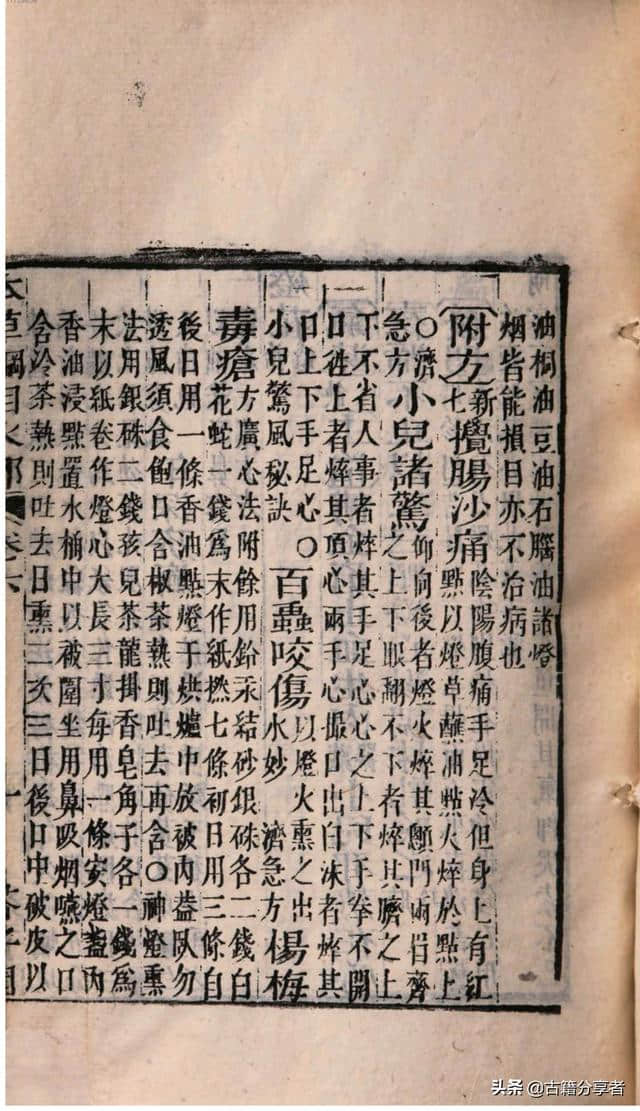 油桐油豆油石腦油諸燈
烟皆能損目亦不治病也
附方新七攪腸沙痛陰陽腹痛手足冷但身上有紅
點以燈草蘸油點火焠於點上
○濟急方小兒諸驚仰向後者燈火焠其顖門兩眉齊
之上下眼翻不下者焠其臍之上
下不省人事者焠其手足心心之上下手拳不開
口徃上者焠其頂心兩手心撮口出白沫者焠其
口上下手足心○
小兒驚風秘訣
百蟲咬傷以燈火熏之出
水妙 濟急方楊梅
毒瘡方廣心法附餘用鉛汞結砂銀硃各二錢白
花蛇一錢爲末作紙撚七條初日用三條自
後日用一條香油點燈于烘爐中放被內葢臥勿
透風須食飽口含椒茶熱則吐去再含○神燈熏
法用銀硃二錢孩兒茶龍掛香皂角子各一錢爲
末以紙卷作燈心大長三寸每用一條安燈盞內
香油浸點置水桶中以被圍坐用鼻吸烟嚥之口
含冷茶熱則吐去日熏二次三日後口中破皮以
本草綱目水部 卷六
頭条 @古籍分享者